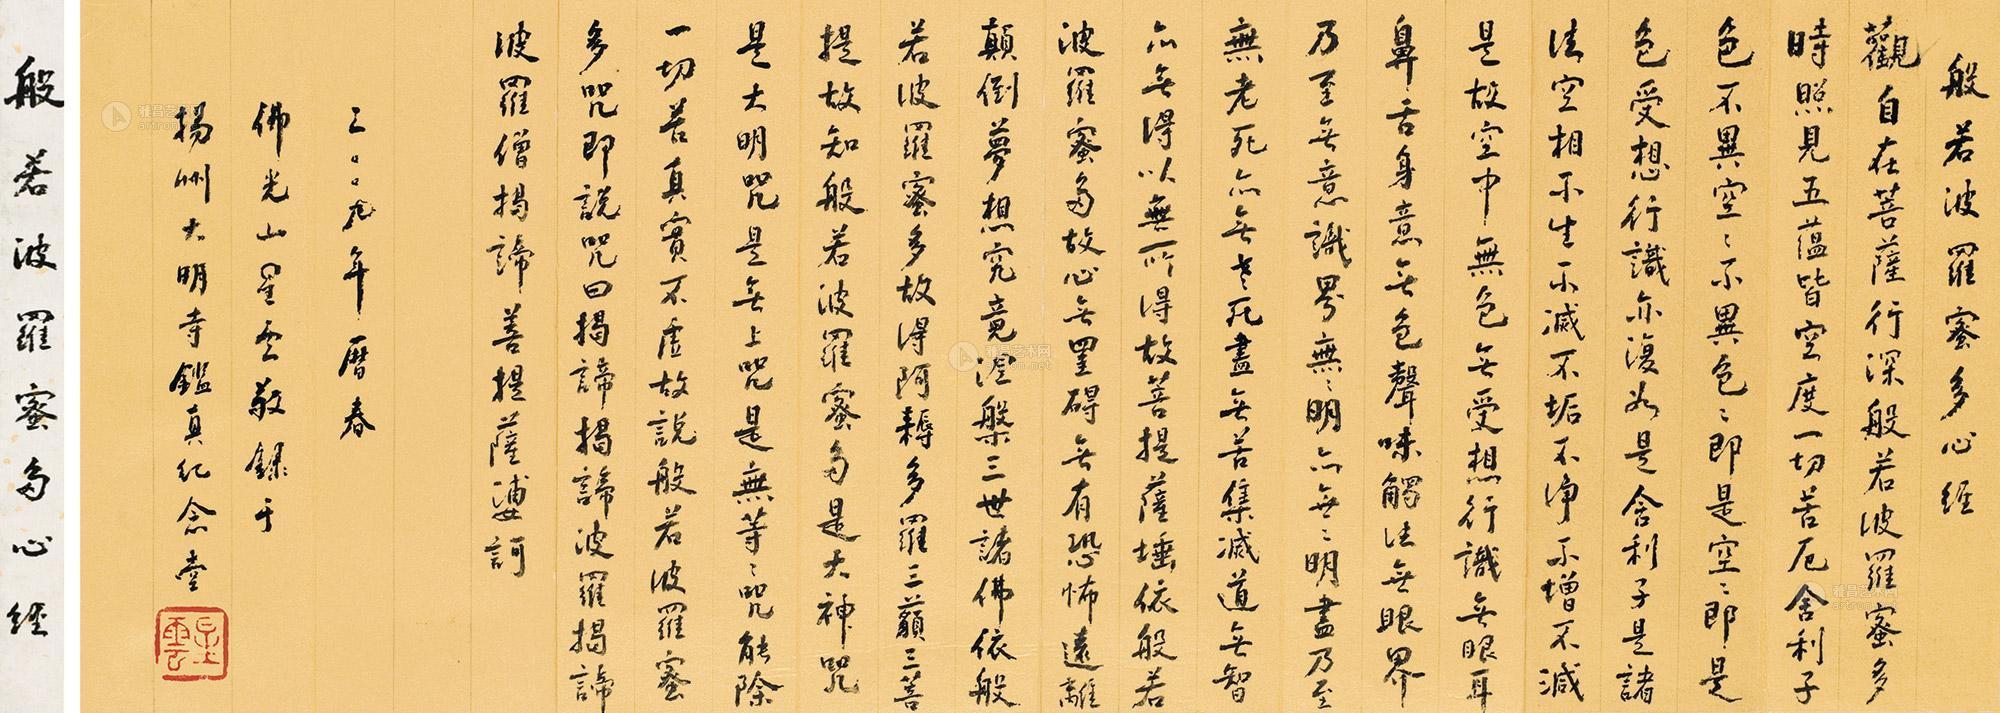 般若波羅蜜多心經
觀自在菩薩行深般若波羅蜜多
時照見五蘊皆空度一切苦厄舍利子
色不異空〻不異色〻即是空〻即是
色受想行識亦復如是舍利子是諸
法空相不生不滅不垢不淨不增不減
是故空中無色无受想行識无眼耳
鼻舌身意无色聲味觸法无眼界
乃至无意識界無〻明亦無〻明盡乃至
無老死亦无老死盡无苦集滅道无智
亦无得以無所得故菩提薩埵依般若
波羅蜜多故心无罣碍无有恐怖遠離
顛倒夢想究竟涅槃三世諸佛依般
若波羅蜜多故得阿耨多羅三藐三菩
提故知般若波羅蜜多是大神咒
是大明咒是无上咒是無等〻咒能除
一切苦真實不虛故說般若波羅蜜
多咒即說咒曰揭諦揭諦波羅揭諦
波羅僧揭諦菩提薩婆訶
二〇〇九年曆春
佛光山星雲敬錄于
揚州大明寺鑑真紀念堂
星雲
般若波羅蜜多心經
雅昌艺术网
artron.net